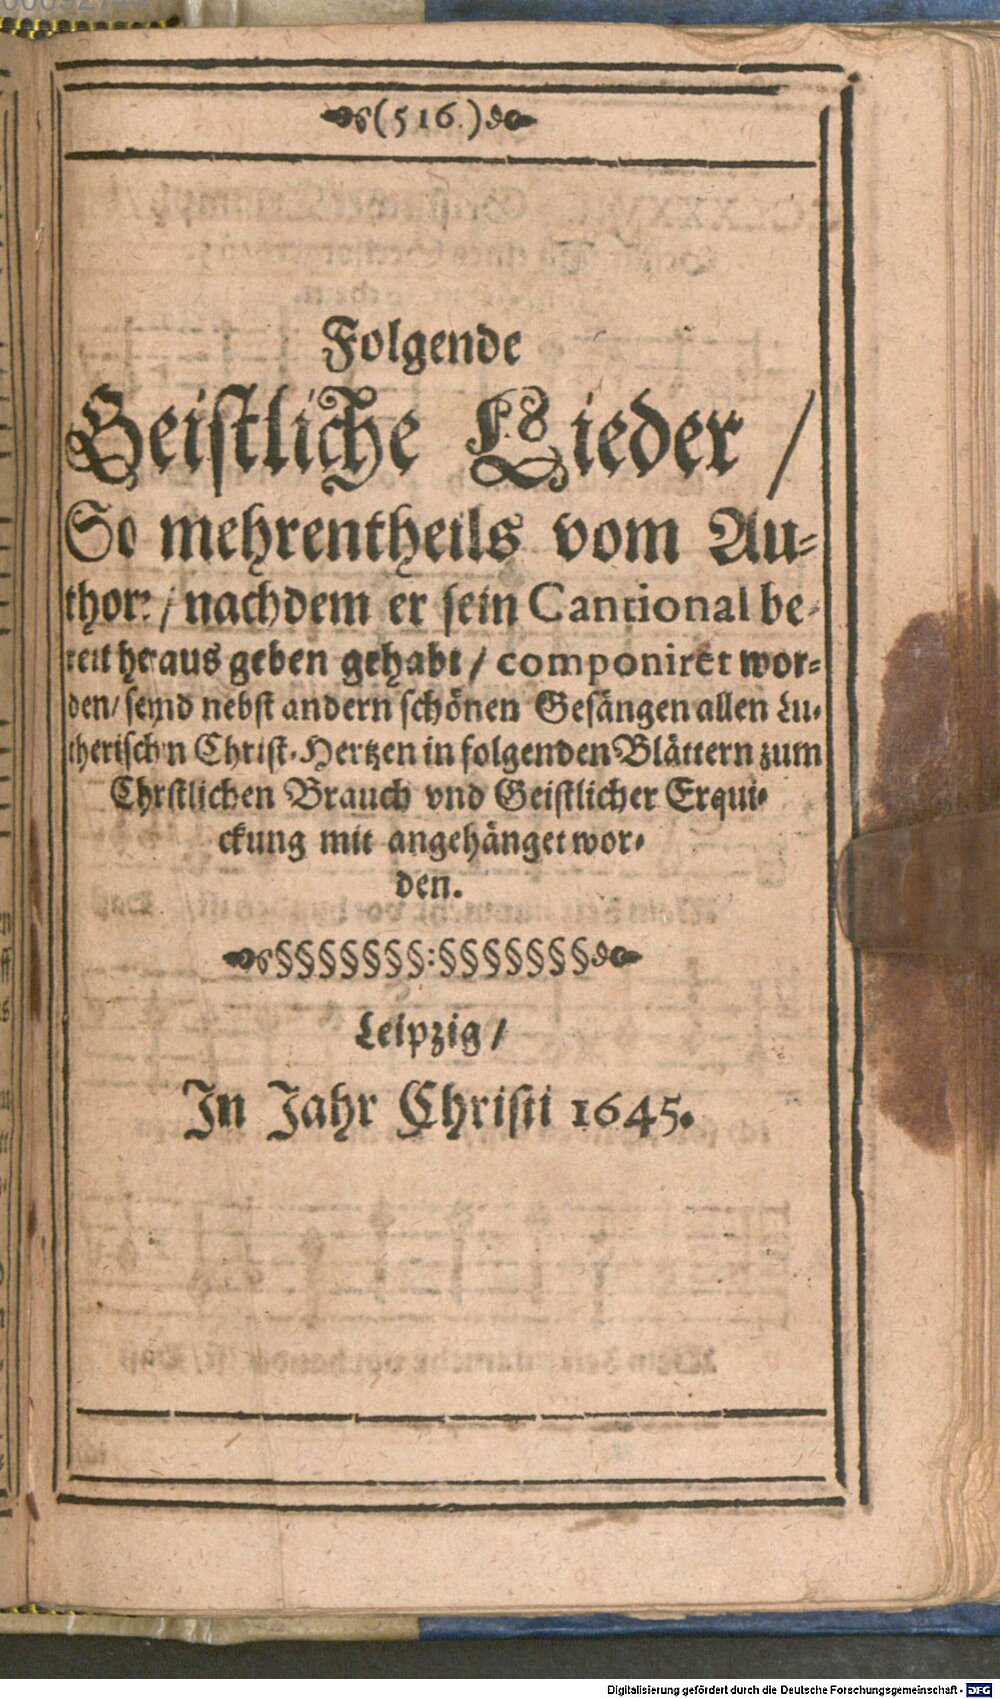 (516.)
Folgende
Geistliche Lieder /
So mehrentheils vom Au-
thore / nachdem er sein Cantional be-
reit heraus geben gehabt / componiret wor-
den / seynd nebst andern schönen Gesängen allen Lu-
therischen Christ-Hertzen in folgenden Blättern zum
Chrstlichen Brauch vnd Geistlicher Erqui-
ckung mit angehänget wor-
den.
§§§§§§§:§§§§§§§
Leipzig /
In Jahr Christi 1645.
Digitalisierung gefördert durch die Deutsche Forschungsgemeinschaft - DFG